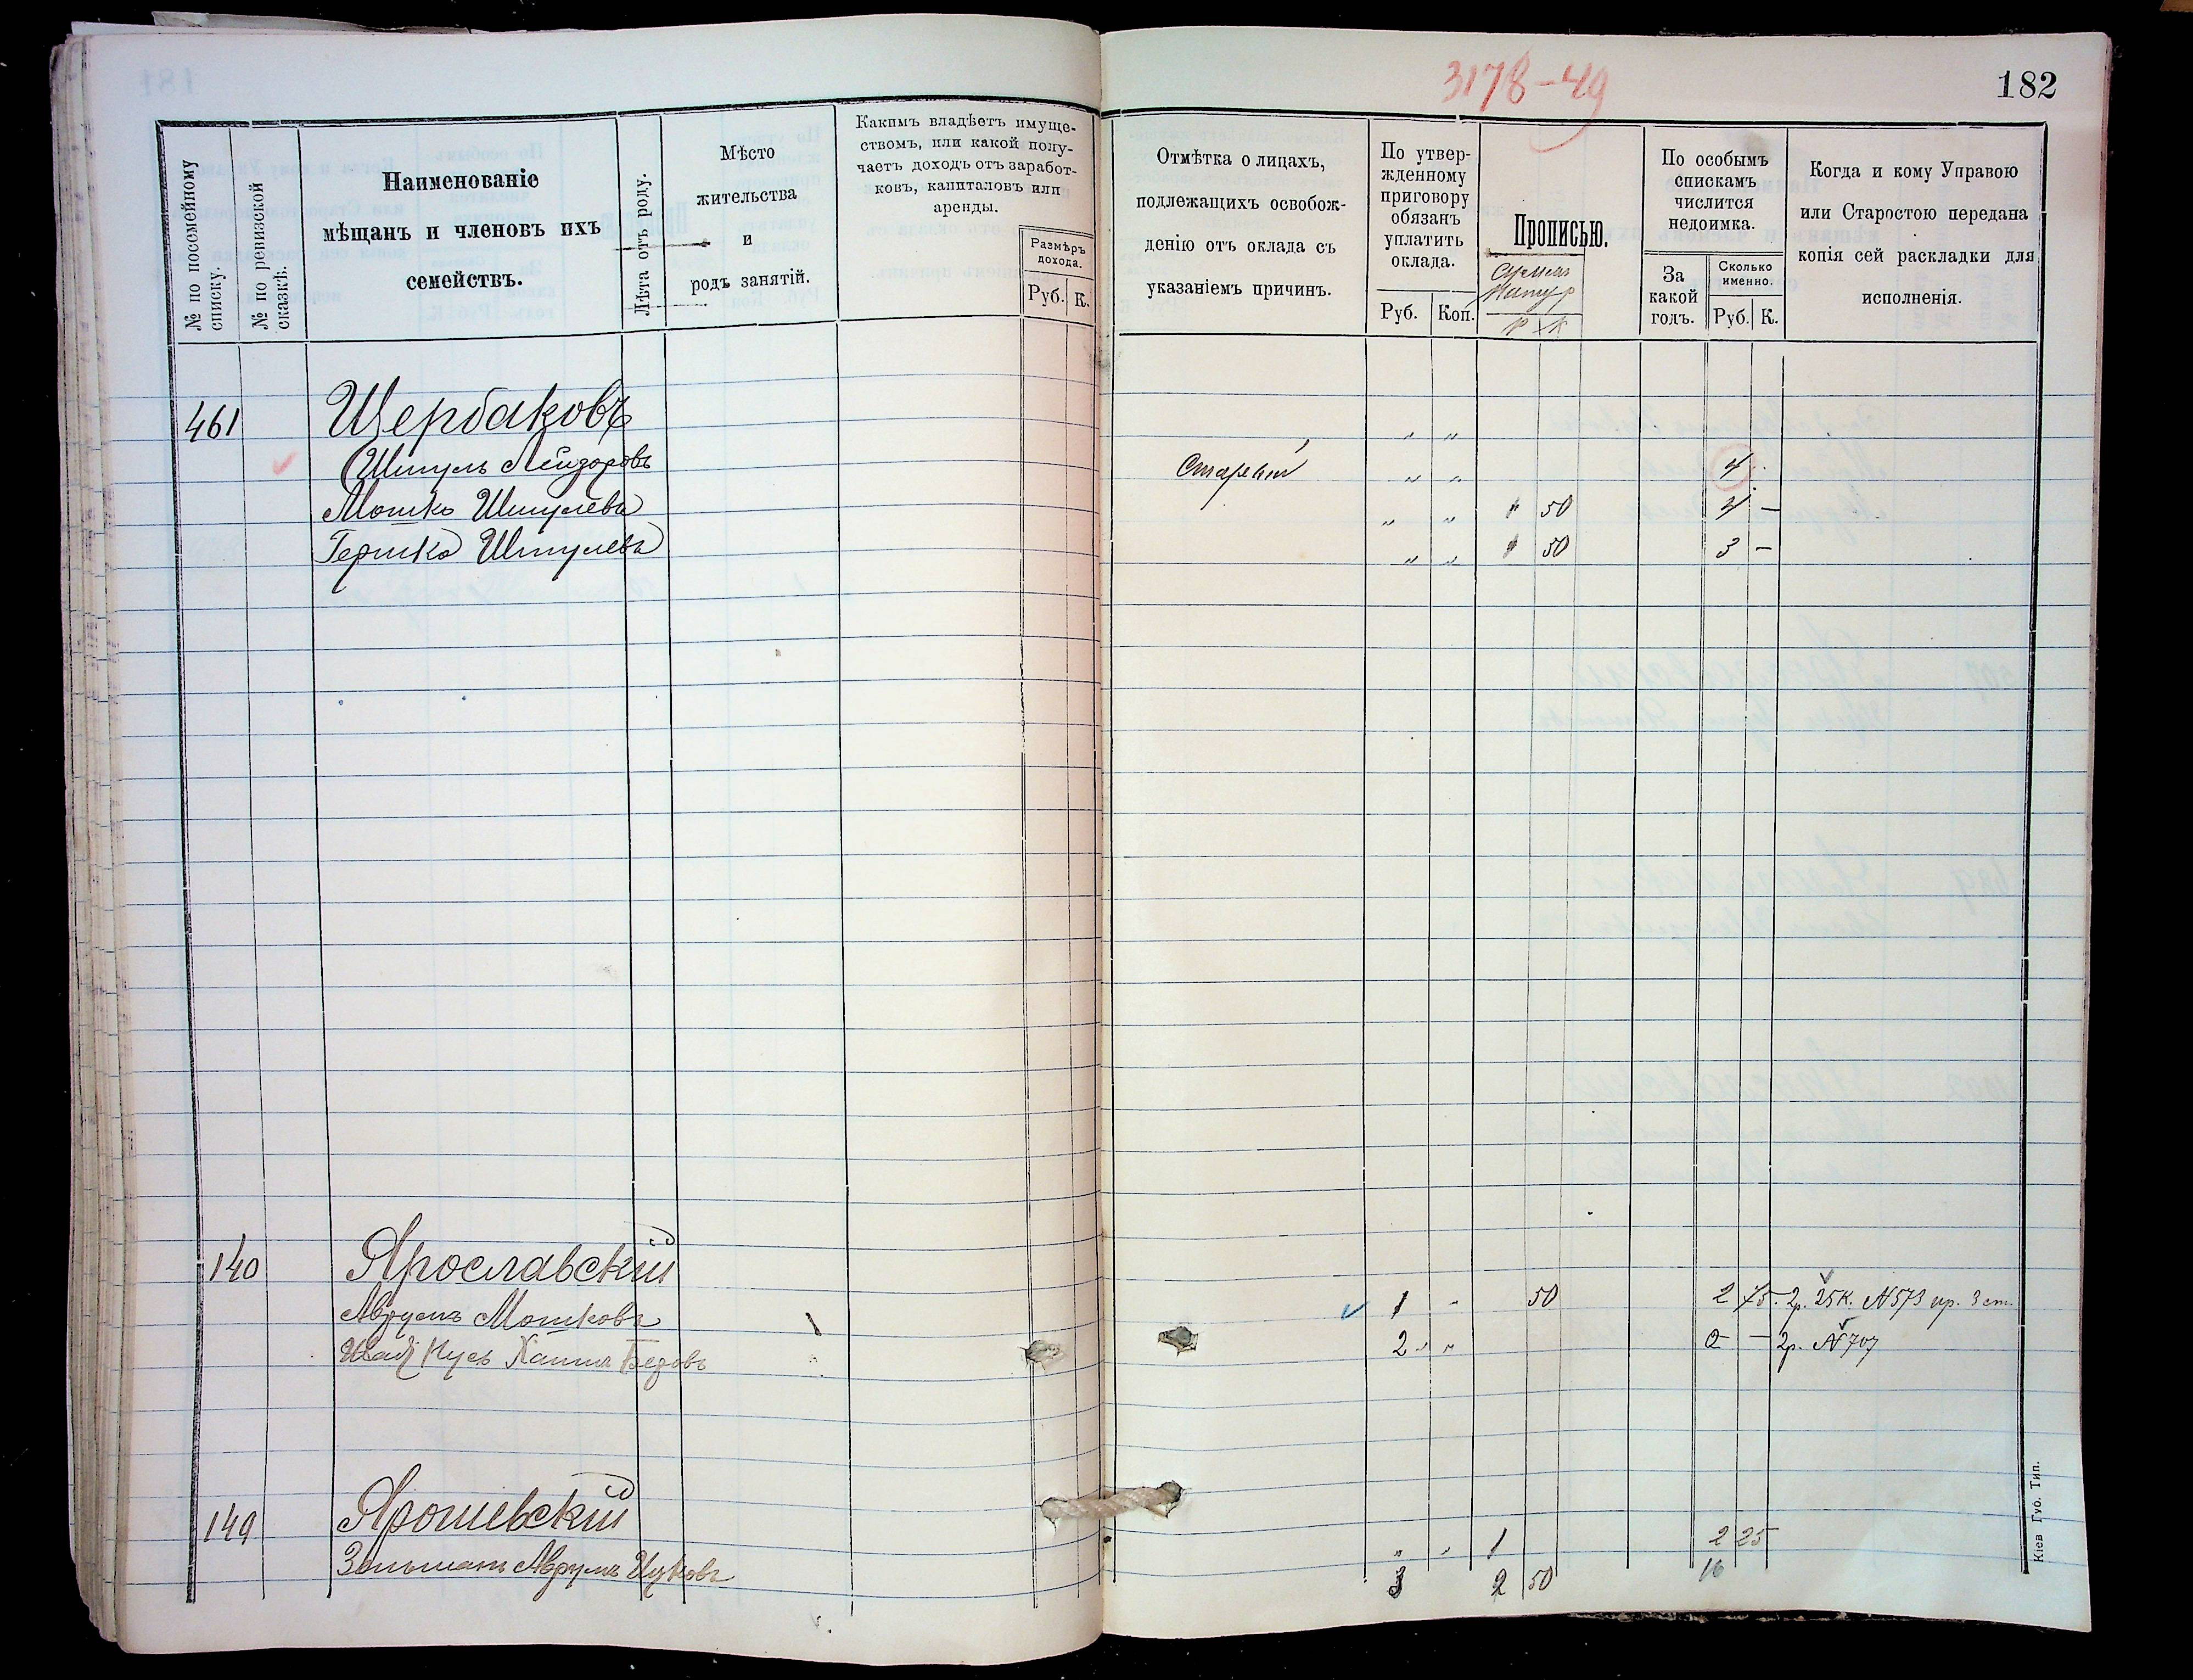 3178-49
182
№ по посемейному списку.
№ по ревизской сказкѣ.
Наименованіе
мѣщанъ и членовъ ихъ
семействъ.
Лѣта отъ роду.
Мѣсто
жительства
и
родъ занятій.
Какимъ владѣетъ имуще-
ствомъ, или какой полу-
чаетъ доходъ отъ заработ-
ковъ, капиталовъ или
аренды.
Размѣръ
дохода.
Руб. К.
Отмѣтка о лицахъ,
подлежащихъ освобож-
денію отъ оклада съ
указаніемъ причинъ.
По утвер-
жденному
приговору
обязанъ
уплатить
оклада.
Руб. Коп.
Прописью.
Р К
По особымъ
спискамъ
числится
недоимка.
За
какой
годъ.
Сколько
именно.
Руб. К.
Когда и кому Управою
или Старостою передана
копія сей раскладки для
исполненія.
461 Щербаковъ " "
Шмуль Лейзоровъ " " 4
Мошко Шмулевъ " " 1 50 4 —
Гершко Шмулевъ " " 1 50 3 —
140 Ярославскій
Аврумъ Мошковъ 1 1 " 50 2 75 2р. 25к. №573 пр. 3 ст.
Хаимъ Беровъ 2 " " 2 — 2р. №707
149 Ярошевскій
Зельманъ Аврумъ Ицковъ " " 1 2 25
3 2 50 16
Кіев Губ. Тип.